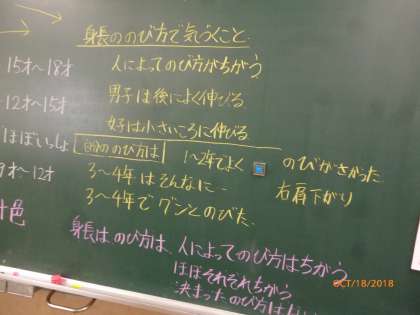 身長ののび方で気づくこと
15才～18才
人によってのび方がちがう
12才～15才
男子は後によく伸びる
女子は小さいころに伸びる
ほぼいっしょ
自分ののび方は
1～2年でよく
のびがさがった
9才～12才
3～4年はそんなに‐
右肩下がり
3～4年でグンとのびた。
十色
身長はのび方は、人によってのび方はちがう
ほぼそれぞれちがう
決まったのび方はない
OCT/18/2018